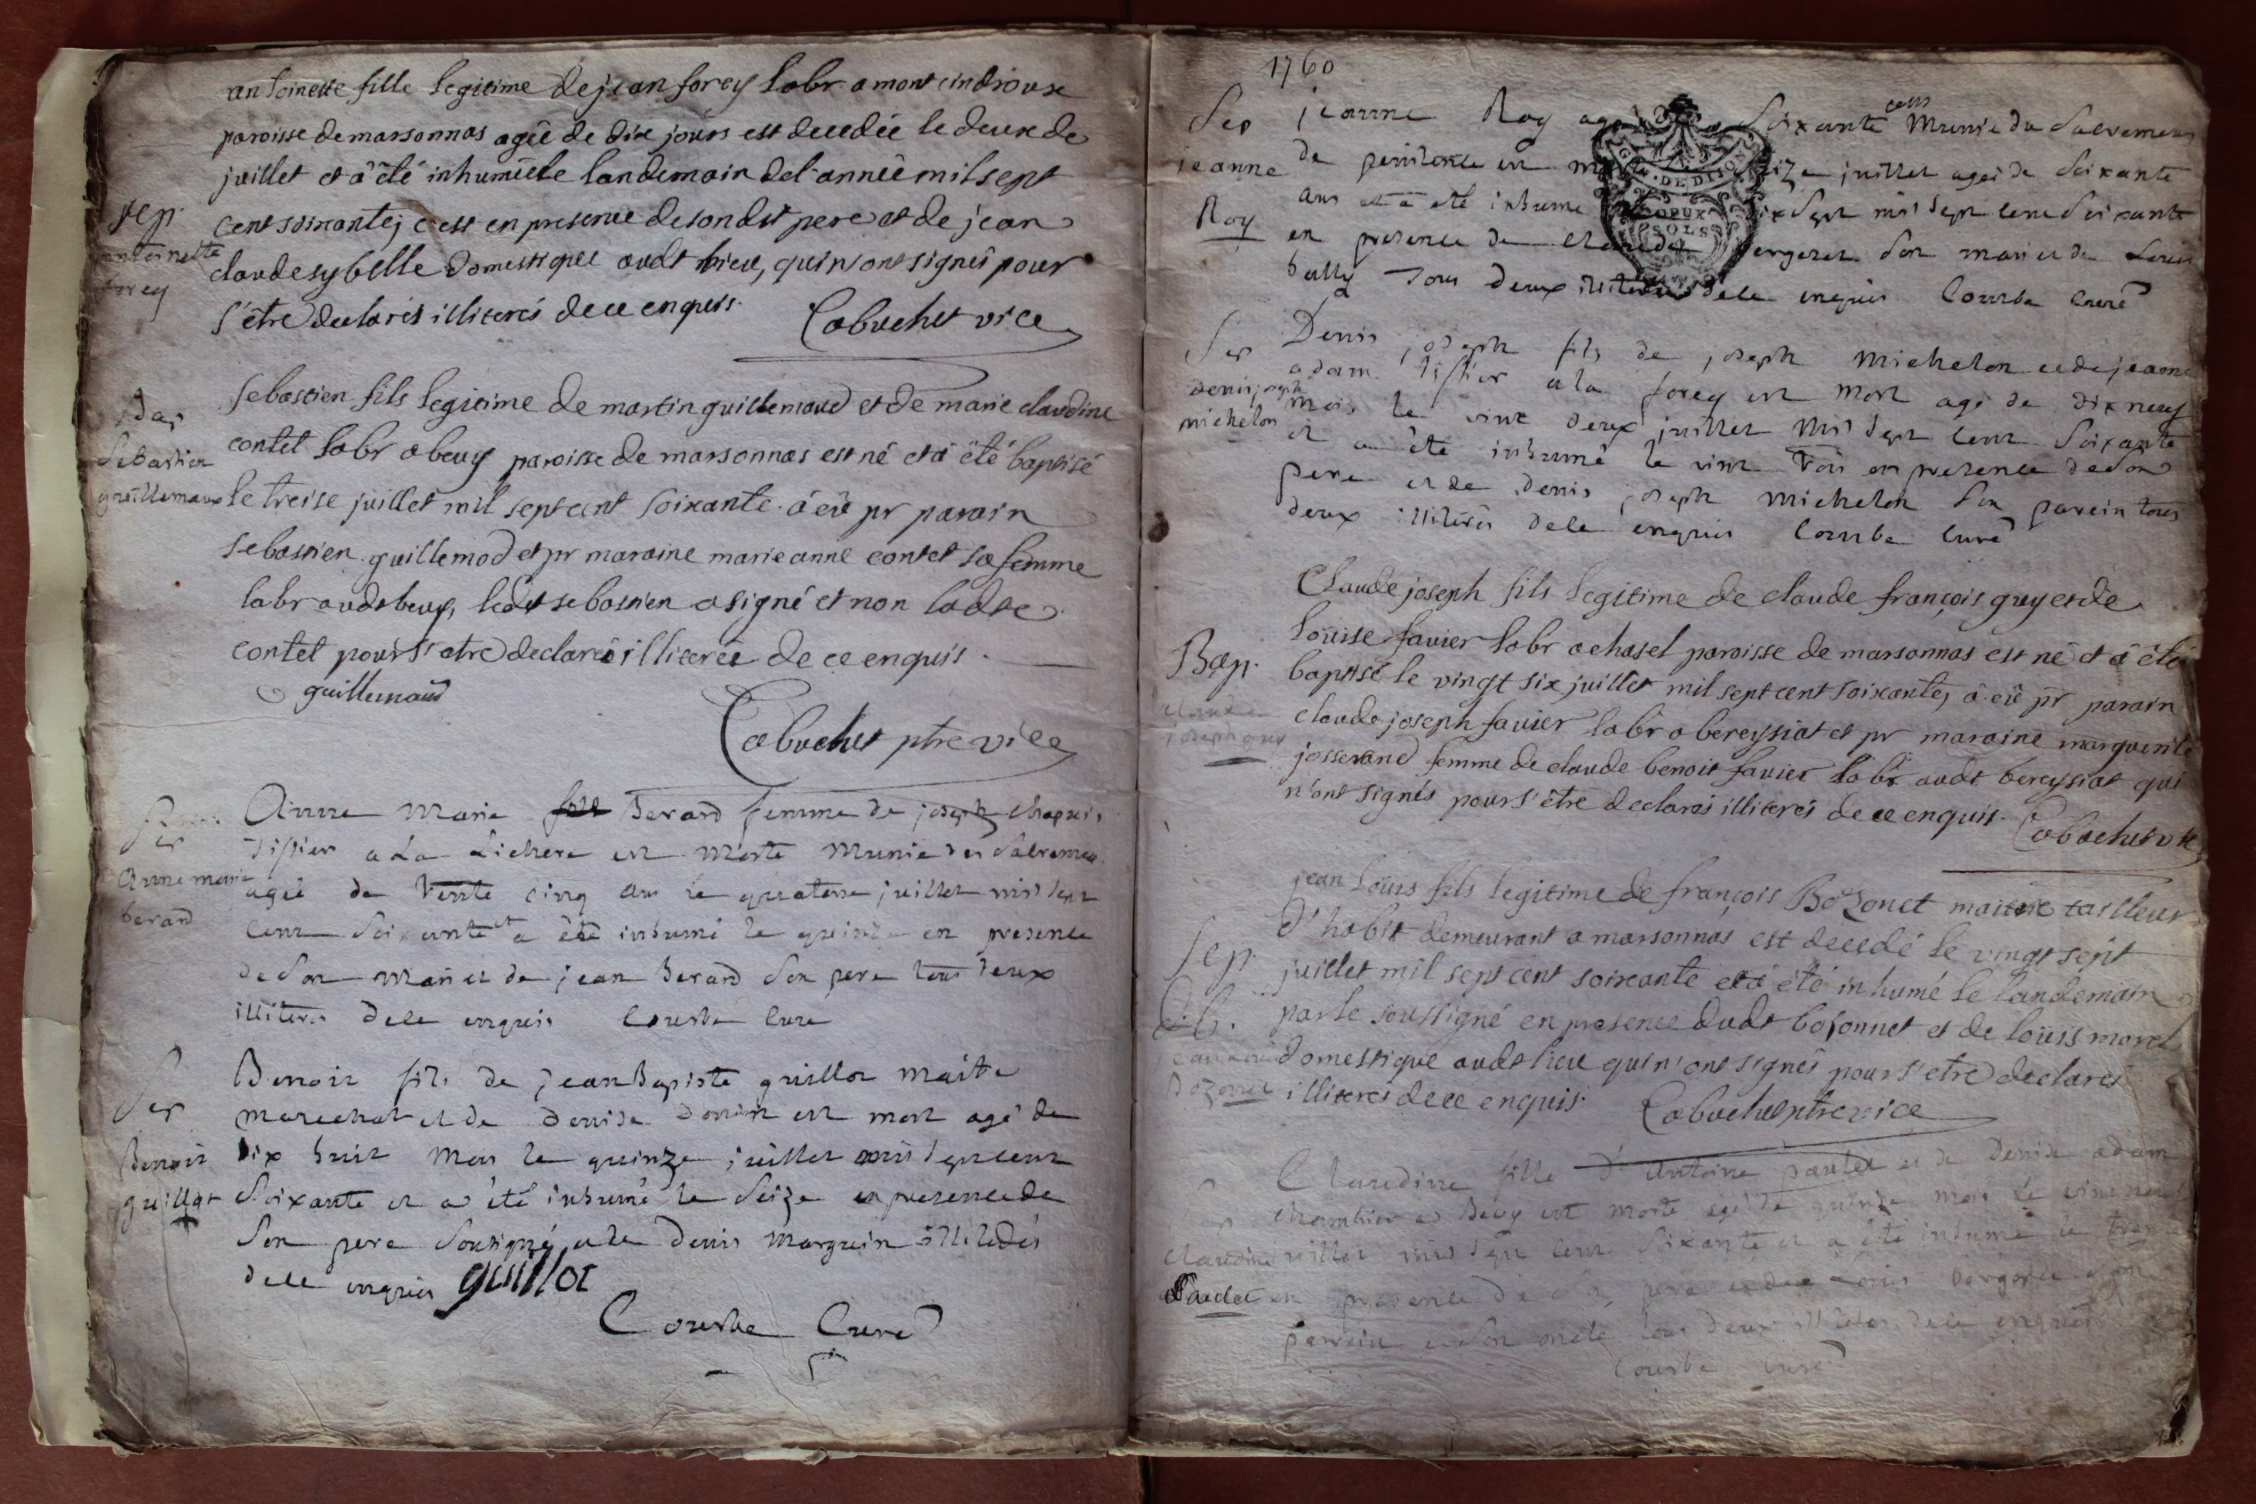 antoinette fille legitime de jean forey labr a montcindroux
paroisse de marsonnas agée de dix jours est decedée le deux de
juillet et â êté inhumée le landemain del'année mil sept
cent soixante, c'est en presence de son dt pere et de jean
claude sybelle domestique audt lieu, qui n'ont signé pour
s'être declarés illiterés de ce enquis. Cabuchet vice
sep.
antoinette
forey
sebastien fils legitime de martin guillemaud et de marie claudine
contet labr a beuy paroisse de marsonnas est né et â êté baptisé
le treise juillet mil sept cent soixante. â eü pr parain
sebastien guillemod et pr maraine marie anne contet sa femme
labr audt beuy, ledt sebastien a signé et non ladte
contet pour s'etre declarée illiterée de ce enquis.
guillemaud
Cabuchet ptre vice
bap
sebastien
guillemaux
Anne Marie berard femme de joseph chapuis
tissier a La Lichere est morte Munie des Sacremens
agée de trente cinq ans le quatorze juillet mil sept
cent Soixante et a êté inhumé le quinze en presence
de son Mari et de jean berard son pere tous deux
illiteres de ce enquis Courbe Curé
Sep
Anne marie
berard
Benoit fils de jean Baptiste guillot maître
marechal et de Denise Donin est mort agé de
dix huit mois le quinze juillet mil sept cent
Soixante et a êté inhumé le Seize en presence de
Son pere Sousigné et de Denis Marguin illiterés
de ce enquis guillot
Courbe Curé
Sep
Benoit
guillot
1760
jeanne Roy Soixante cens Munie du Sacremens
de penitence est juillet agée de Soixante
ans et a eté inhume mil sept cent Soixante
en presence de Claude vergeret son mari et de Louis
bully Tous deux illiteres de ce enquis Courbe Curé
Sep
jeanne
Roy
Denis joseph fils de joseph Michelon et de jeanne
adam tissier a la forey est mort agé de dix neuf
mois le vint deux juillet mil sept cent Soixante
et a êté inhumé le vint trois en presence de son
pere et de Denis joseph Michelon son parein tous
deux illiterés de ce enquis Courbe Curé
Sep
denis joseph
michelon
Claude joseph fils legitime de claude françois guy et de
loüise favier labr a chasel paroisse de marsonnas est né et â êté
baptisé le vingt six juillet mil sept cent soixante, â eü pr parain
claude joseph favier labr a bereysiat et pr maraine marguerite
josserand femme de claude benoit favier labr audt bereysiat qui
n'ont signés pour s'être declarés illiterés de ce enquis. Cabuchet vice
Bap.
claude
joseph guy
jean loüis fils legitime de françois Bozonet maitre tailleur
d'habit demeurant a marsonnas est decedé le vingt sept
juillet mil sept cent soixante et â êté inhumé le landemain
par le soussigné en presence dudt bosonnet et de loüis morel
domestique audt lieu qui n'ont signés pour s'etre declarés
illiterés de ce enquis. Cabuchet ptre vice
Sep.
jean louis
bozonet
Claudine fille d'Antoine paulet et de Denise adam
a Beuy est morte agé de quinze mois le vint neuf
juillet mil sept cent Soixante et a êté inhumé le trente
en presence de son pere et de Louis Vergeret son
parein et son oncle tous deux illiteres de ce enquis
Courbe curé
Claudine
Paulet